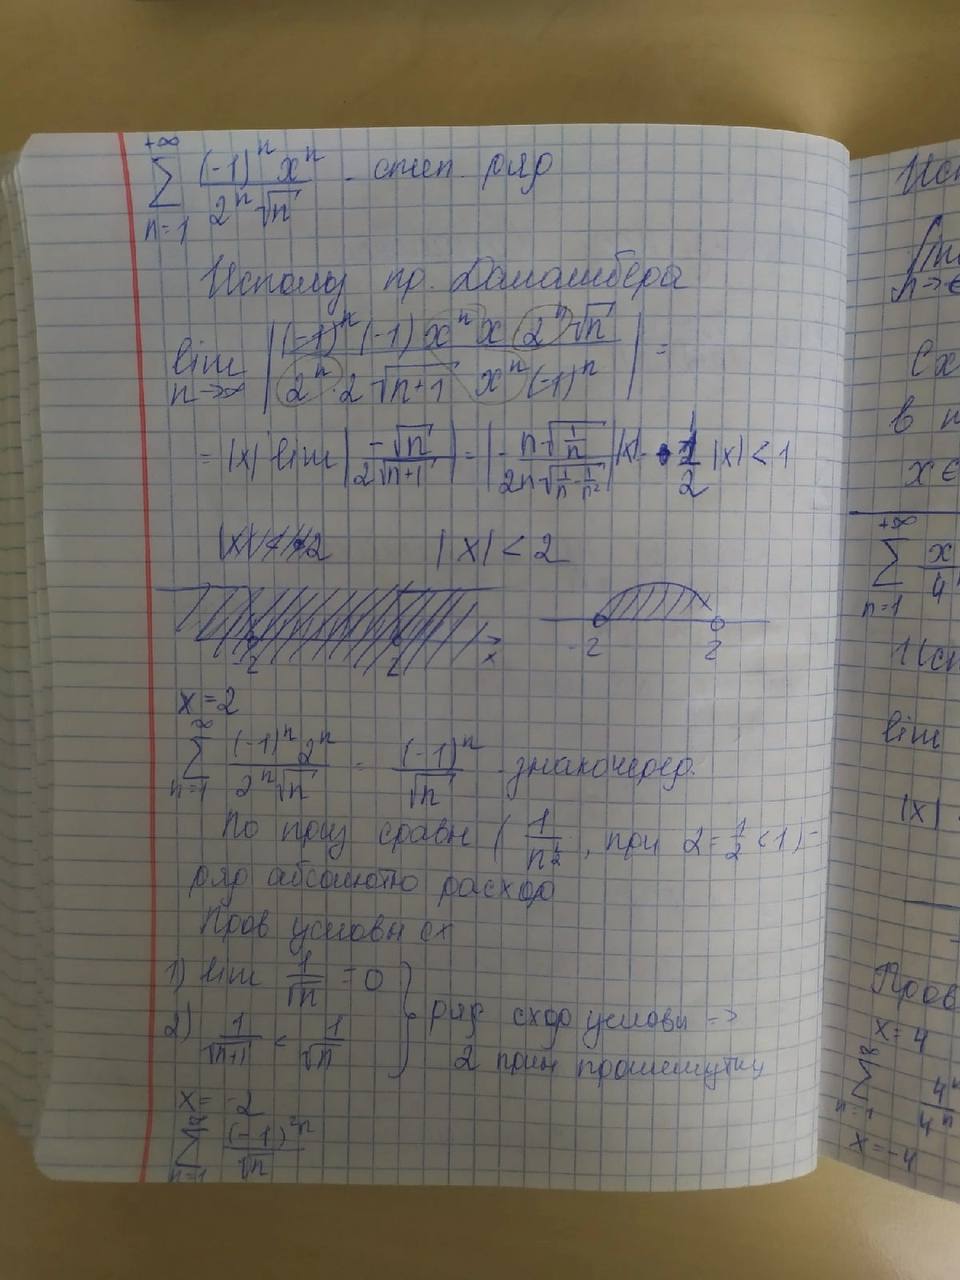 +∞ ∑ n=1 (-1)^n x^n / 2^n √n - степ. ряд
Использ пр. Даламбера
lim n→∞ | (-1)^n (-1) x^n x 2^n √n / 2^n · 2 √n+1 x^n (-1)^n | =
= |x| lim | -√n / 2√n+1 | = | - n √(1/n) / 2n √(1/n - 1/n²) | |x| - 1/2 |x| < 1
|x| < 2
-2 2 x
-2 2
x = 2
∞ ∑ n=1 (-1)^n 2^n / 2^n √n = (-1)^n / √n - знакочеред.
По приз сравн ( 1 / n^½ , при 2 = 1/2 < 1) -
ряд абсолютно расход
Пров условн сх
1) lim 1/√n = 0
2) 1/√n+1 < 1/√n } ряд сход условн ->
2 прин промежутку
x = -2
∞ ∑ n=1 (-1)^2n / √n
lim
n→
в п
x ∈
+∞ ∑ n=1 x / 4
lim
|x|
Пров
x = 4
∞ ∑ n=1 4^n / 4^n
x = -4